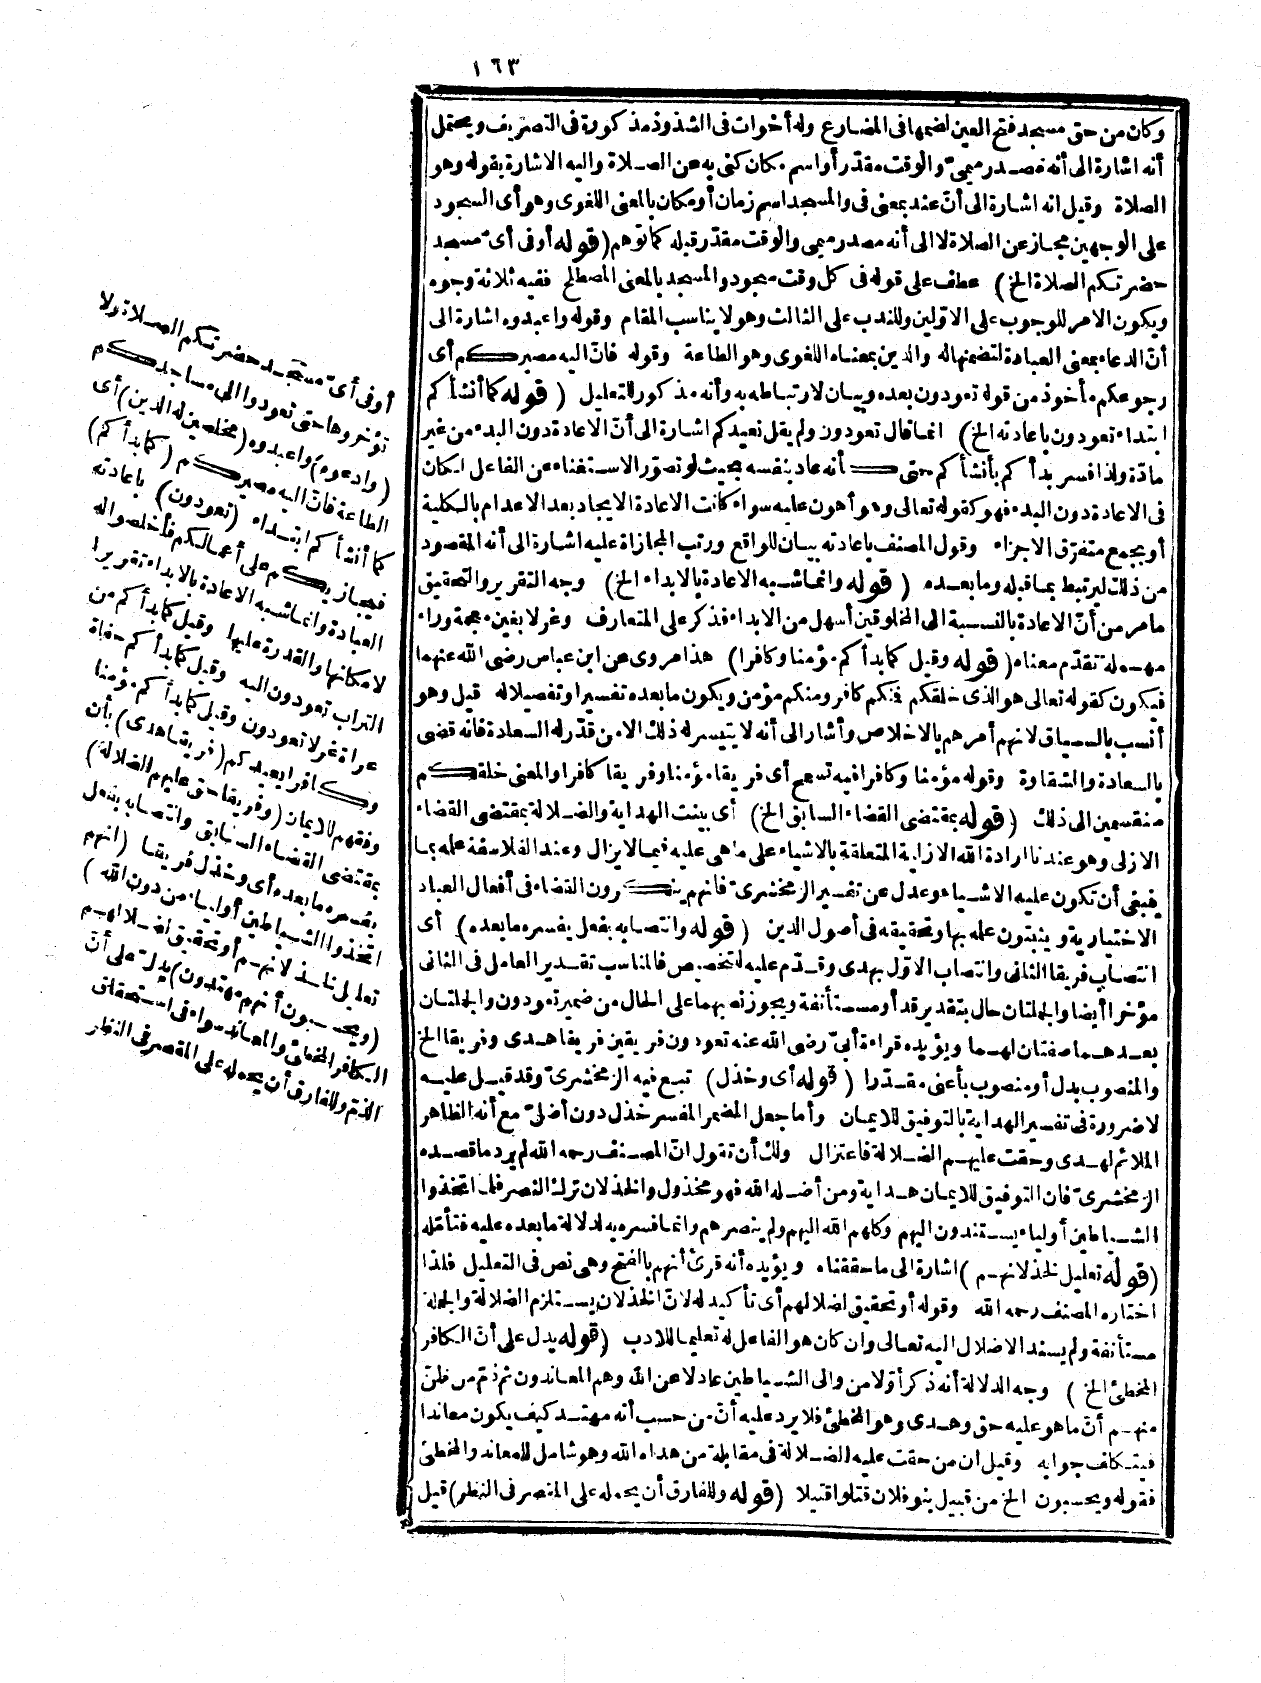 ١٦٣
وكان من حق مسجد فتح العين لضمها في المضارع وله أخوات في الشذوذ مذكورة في التصريف ويحتمل
أنه اشارة الى أنه مصدر ميمي والوقت مقدّر أو اسم مكان كنى به عن الصلاة واليه الاشارة بقوله وهو
الصلاة وقيل انه اشارة الى أنّ عند بمعنى في والمسجد اسم زمان أو مكان بالمعنى اللغوى وهو أى السجود
على الوجهين مجاز عن الصلاة لا الى أنه مصدر ميمي والوقت مقدّر قبله كما توهم (قوله أو في أىّ مسجد
حضرتكم الصلاة الخ) عطف على قوله في كل وقت سجود والمسجد بالمعنى المصطلح ففيه ثلاثة وجوه
ويكون الامر للوجوب على الاوّلين وللندب على الثالث وهو لا يناسب المقام وقوله واعبدوه اشارة الى
أنّ الدعاء بمعنى العبادة لتضمنها له والدين بمعناه اللغوى وهو الطاعة وقوله فانّ اليه مصيركم أى
رجوعكم مأخوذ من قوله تعودون بعده وبيان لارتباطه به وأنه مذكور للتعليل (قوله كما أنشأكم
ابتداء تعودون باعادته الخ) انما قال تعودون ولم يقل نعيدكم اشارة الى أنّ الاعادة دون البدء من غير
مادّة ولذا فسر بدأكم بأنشأكم حتى كأنه عاد بنفسه بحيث لو تصوّر الاستغناء عن الفاعل لكان
في الاعادة دون البدء فهو كقوله تعالى وهو أهون عليه سواء كانت الاعادة الايجاد بعد الاعدام بالكلية
أو بجمع متفرّق الاجزاء وقول المصنف باعادته بيان للواقع ورتب المجازاة عليه اشارة الى أنه المقصود
من ذلك ليرتبط بما قبله وما بعده (قوله وانما شبه الاعادة بالابداء الخ) وجه التقرير والتحقيق
ما مر من أنّ الاعادة بالنسبة الى المخلوقين أسهل من الابداء فذكر على المتعارف وغرلا بغين معجمة وراء
مهملة تقدّم معناه (قوله وقيل كما بدأكم مؤمنا وكافرا) هذا مروى عن ابن عباس رضى الله عنهما
فيكون كقوله تعالى هو الذى خلقكم فمنكم كافر ومنكم مؤمن ويكون ما بعده تفسيرا وتفصيلا له قيل وهو
أنسب بالسياق لانهم أمرهم بالاخلاص وأشار الى أنه لا يتيسر له ذلك الا من قدّر له السعادة فانه قضى
بالسعادة والشقاوة وقوله مؤمنا وكافرا فيه تسمح أى فريقا مؤمنا وفريقا كافرا والمعنى خلقكم
منقسمين الى ذلك (قوله بمقتضى القضاء السابق الخ) أى يبنت الهداية والضلالة بمقتضى القضاء
الازلى وهو عندنا ارادة الله الازلية المتعلقة بالاشياء على ما هى عليه فيما لا يزال وعند الفلاسفة علمه بما
ينبغى أن تكون عليه الاشياء وعدل عن تفسير الزمخشرىّ فانهم ينكرون القضاء في أفعال العباد
الاختيارية ويثبتون علمه بها وتحقيقه في أصول الدين (قوله وانتصابه بفعل يفسره ما بعده) أى
انتصاب فريقا الثانى وانتصاب الاوّل بهدى وقدّم عليه للتخصيص فالمناسب تقدير العامل في الثانى
مؤخرا أيضا والجملتان حال بتقدير قد أو مستأنفة ويجوز نصبهما على الحال من ضمير تعودون والجملتان
بعدهما صفتان لهما ويؤيده قراءة أبىّ رضى الله عنه تعودون فريقين فريقا هدى وفريقا الخ
والمنصوب بدل أو منصوب بأعنى مقدّرا (قوله أى وخذل) تبع فيه الزمخشرىّ وقد قيل عليه
لا ضرورة في تفسير الهداية بالتوفيق للايمان وأما جعل المضمر المفسر خذل دون أضلّ مع أنه الظاهر
الملائم لهدى وحقت عليهم الضلالة فاعتزال ولك أن تقول انّ المصنف رحمه الله لم يرد ما قصده
الزمخشرىّ فان التوفيق للايمان هداية ومن أضله الله فهو مخذول والخذلان ترك النصر فلما اتخذوا
الشياطين أولياء يستندون اليهم وكلهم الله اليهم ولم ينصرهم وانما فسره به لدلالة ما بعده عليه فتأمّله
(قوله تعليل لخذلانهم) اشارة الى ما حققناه ويؤيده أنه قرئ أنهم بالفتح وهى نص في التعليل فلذا
اختاره المصنف رحمه الله وقوله أو تحقيق لضلالهم أى تأكيد له لانّ الخذلان يستلزم الضلالة والجملة
مستأنفة ولم يسند الاضلال اليه تعالى وان كان هو الفاعل له تعليما للادب (قوله يدل على أنّ الكافر
المخطئ الخ) وجه الدلالة أنه ذكر أوّلا من والى الشياطين عادلا عن الله وهم المعاندون ثم ذمّ من ظنّ
منهم أنّ ما هو عليه حق وهدى وهو المخطئ فلا يرد عليه أنّ من حسب أنه مهتد كيف يكون معاندا
فيتكلف جوابه وقيل ان من حقت عليه الضلالة في مقابلة من هداه الله وهو شامل للمعاند والمخطئ
فقوله ويحسبون الخ من قبيل بنو فلان قتلوا قتيلا (قوله وللفارق أن يحمله على المقصر في النظر) قيل
أو في أىّ مسجد حضرتكم الصلاة ولا
تؤخروها حتى تعودوا الى مساجدكم
(وادعوه) واعبدوه (مخلصين له الدين) أى
الطاعة فانّ اليه مصيركم (كما بدأكم)
كما أنشأكم ابتداء (تعودون) باعادته
فيجازيكم على أعمالكم فأخلصوا له
العبادة وانما شبه الاعادة بالابداء تقريرا
لامكانها والقدرة عليها وقيل كما بدأكم من
التراب تعودون اليه وقيل كما بدأكم حفاة
عراة غرلا تعودون وقيل كما بدأكم مؤمنا
وكافرا يعيدكم (فريقا هدى) بأن
وفقهم للايمان (وفريقا حق عليهم الضلالة)
بمقتضى القضاء السابق وانتصابه بفعل
يفسره ما بعده أى وخذل فريقا (انهم
اتخذوا الشياطين أولياء من دون الله)
تعليل لخذلانهم أو تحقيق لضلالهم
(ويحسبون أنهم مهتدون) يدل على أنّ
الكافر المخطئ والمعاند سواء في استحقاق
الذمّ وللفارق أن يحمله على المقصر في النظر